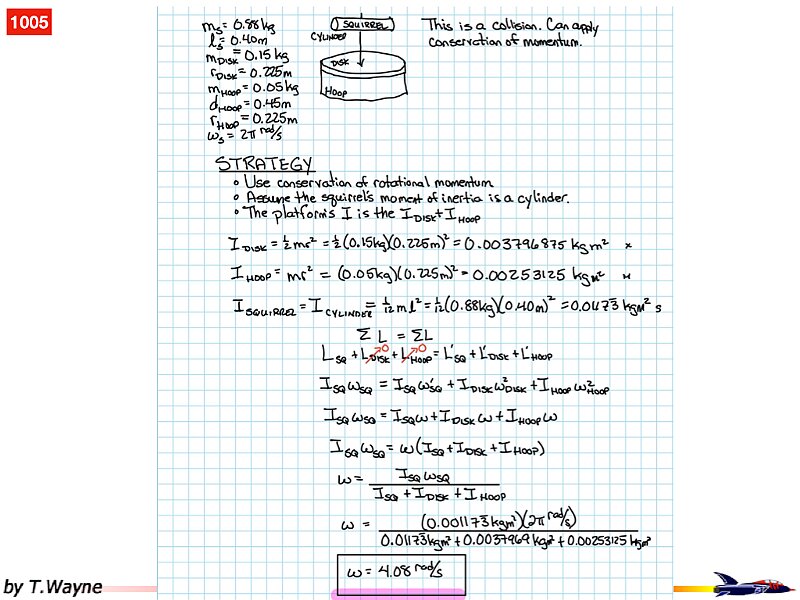 1005
m_S = 0.88 kg
l_S = 0.40m
m_DISK = 0.15 kg
r_DISK = 0.225m
m_HOOP = 0.05 kg
d_HOOP = 0.45m
r_HOOP = 0.225m
ω_S = 2π rad/s
SQUIRREL
CYLINDER
DISK
HOOP
This is a collision. Can apply
conservation of momentum.
STRATEGY
° Use conservation of rotational momentum
° Assume the squirrel's moment of inertia is a cylinder.
° The platform's I is the I_DISK + I_HOOP
I_DISK = ½mr² = ½(0.15kg)(0.225m)² = 0.003796875 kgm² x
I_HOOP = mr² = (0.05kg)(0.225m)² = 0.00253125 kgm² H
I_SQUIRREL = I_CYLINDER = 1/12 ml² = 1/12 (0.88kg)(0.40m)² = 0.01173 kgm² s
ΣL = ΣL
L_SQ + L_DISK 0 + L_HOOP 0 = L'_SQ + L'_DISK + L'_HOOP
I_SQ ω_SQ = I_SQ ω'_SQ + I_DISK ω²_DISK + I_HOOP ω²_HOOP
I_SQ ω_SQ = I_SQ ω + I_DISK ω + I_HOOP ω
I_SQ ω_SQ = ω(I_SQ + I_DISK + I_HOOP)
ω = I_SQ ω_SQ / I_SQ + I_DISK + I_HOOP
ω = (0.001173 kgm²)(2π rad/s) / 0.01173 kgm² + 0.0037969 kgm² + 0.00253125 kgm²
ω = 4.08 rad/s
by T.Wayne